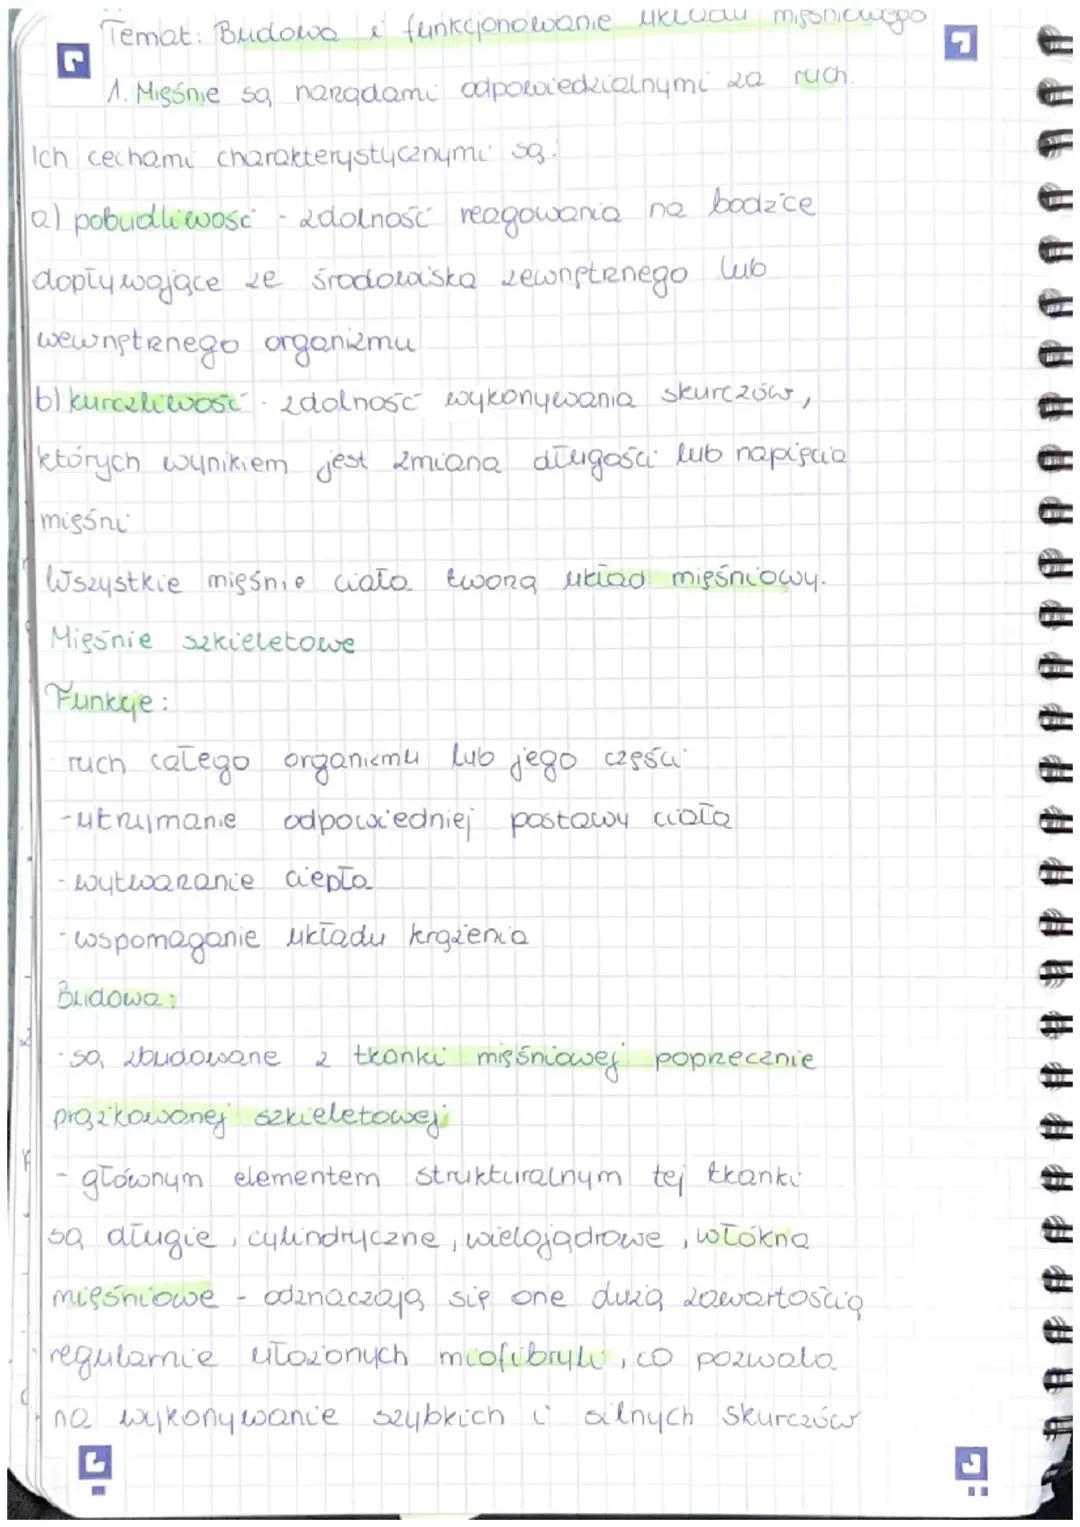 Temat: Budowa i funkcjonowanie układu mięśniowego
1. Mięśnie są narządami odpowiedzialnymi za ruch.
Ich cechami charakterystycznymi są:
a) pobudliwość - zdolność reagowania na bodźce
dopływające ze środowiska zewnętrznego lub
wewnętrznego organizmu
b) kurczliwość - zdolność wykonywania skurczów,
których wynikiem jest zmiana długości lub napięcia
mięśni
Wszystkie mięśnie ciała tworzą układ mięśniowy.
Mięśnie szkieletowe
Funkcje:
ruch całego organizmu lub jego części
-utrzymanie odpowiedniej postawy ciała
-wytwarzanie ciepła
-wspomaganie układu krążenia
Budowa:
-są zbudowane z tkanki mięśniowej poprzecznie
prążkowanej szkieletowej
- głównym elementem strukturalnym tej tkanki
są długie, cylindryczne, wielojądrowe, włókna
mięśniowe - odznaczają się one dużą zawartością
regularnie ułożonych miofibryli, co pozwala
na wykonywanie szybkich i silnych skurczów